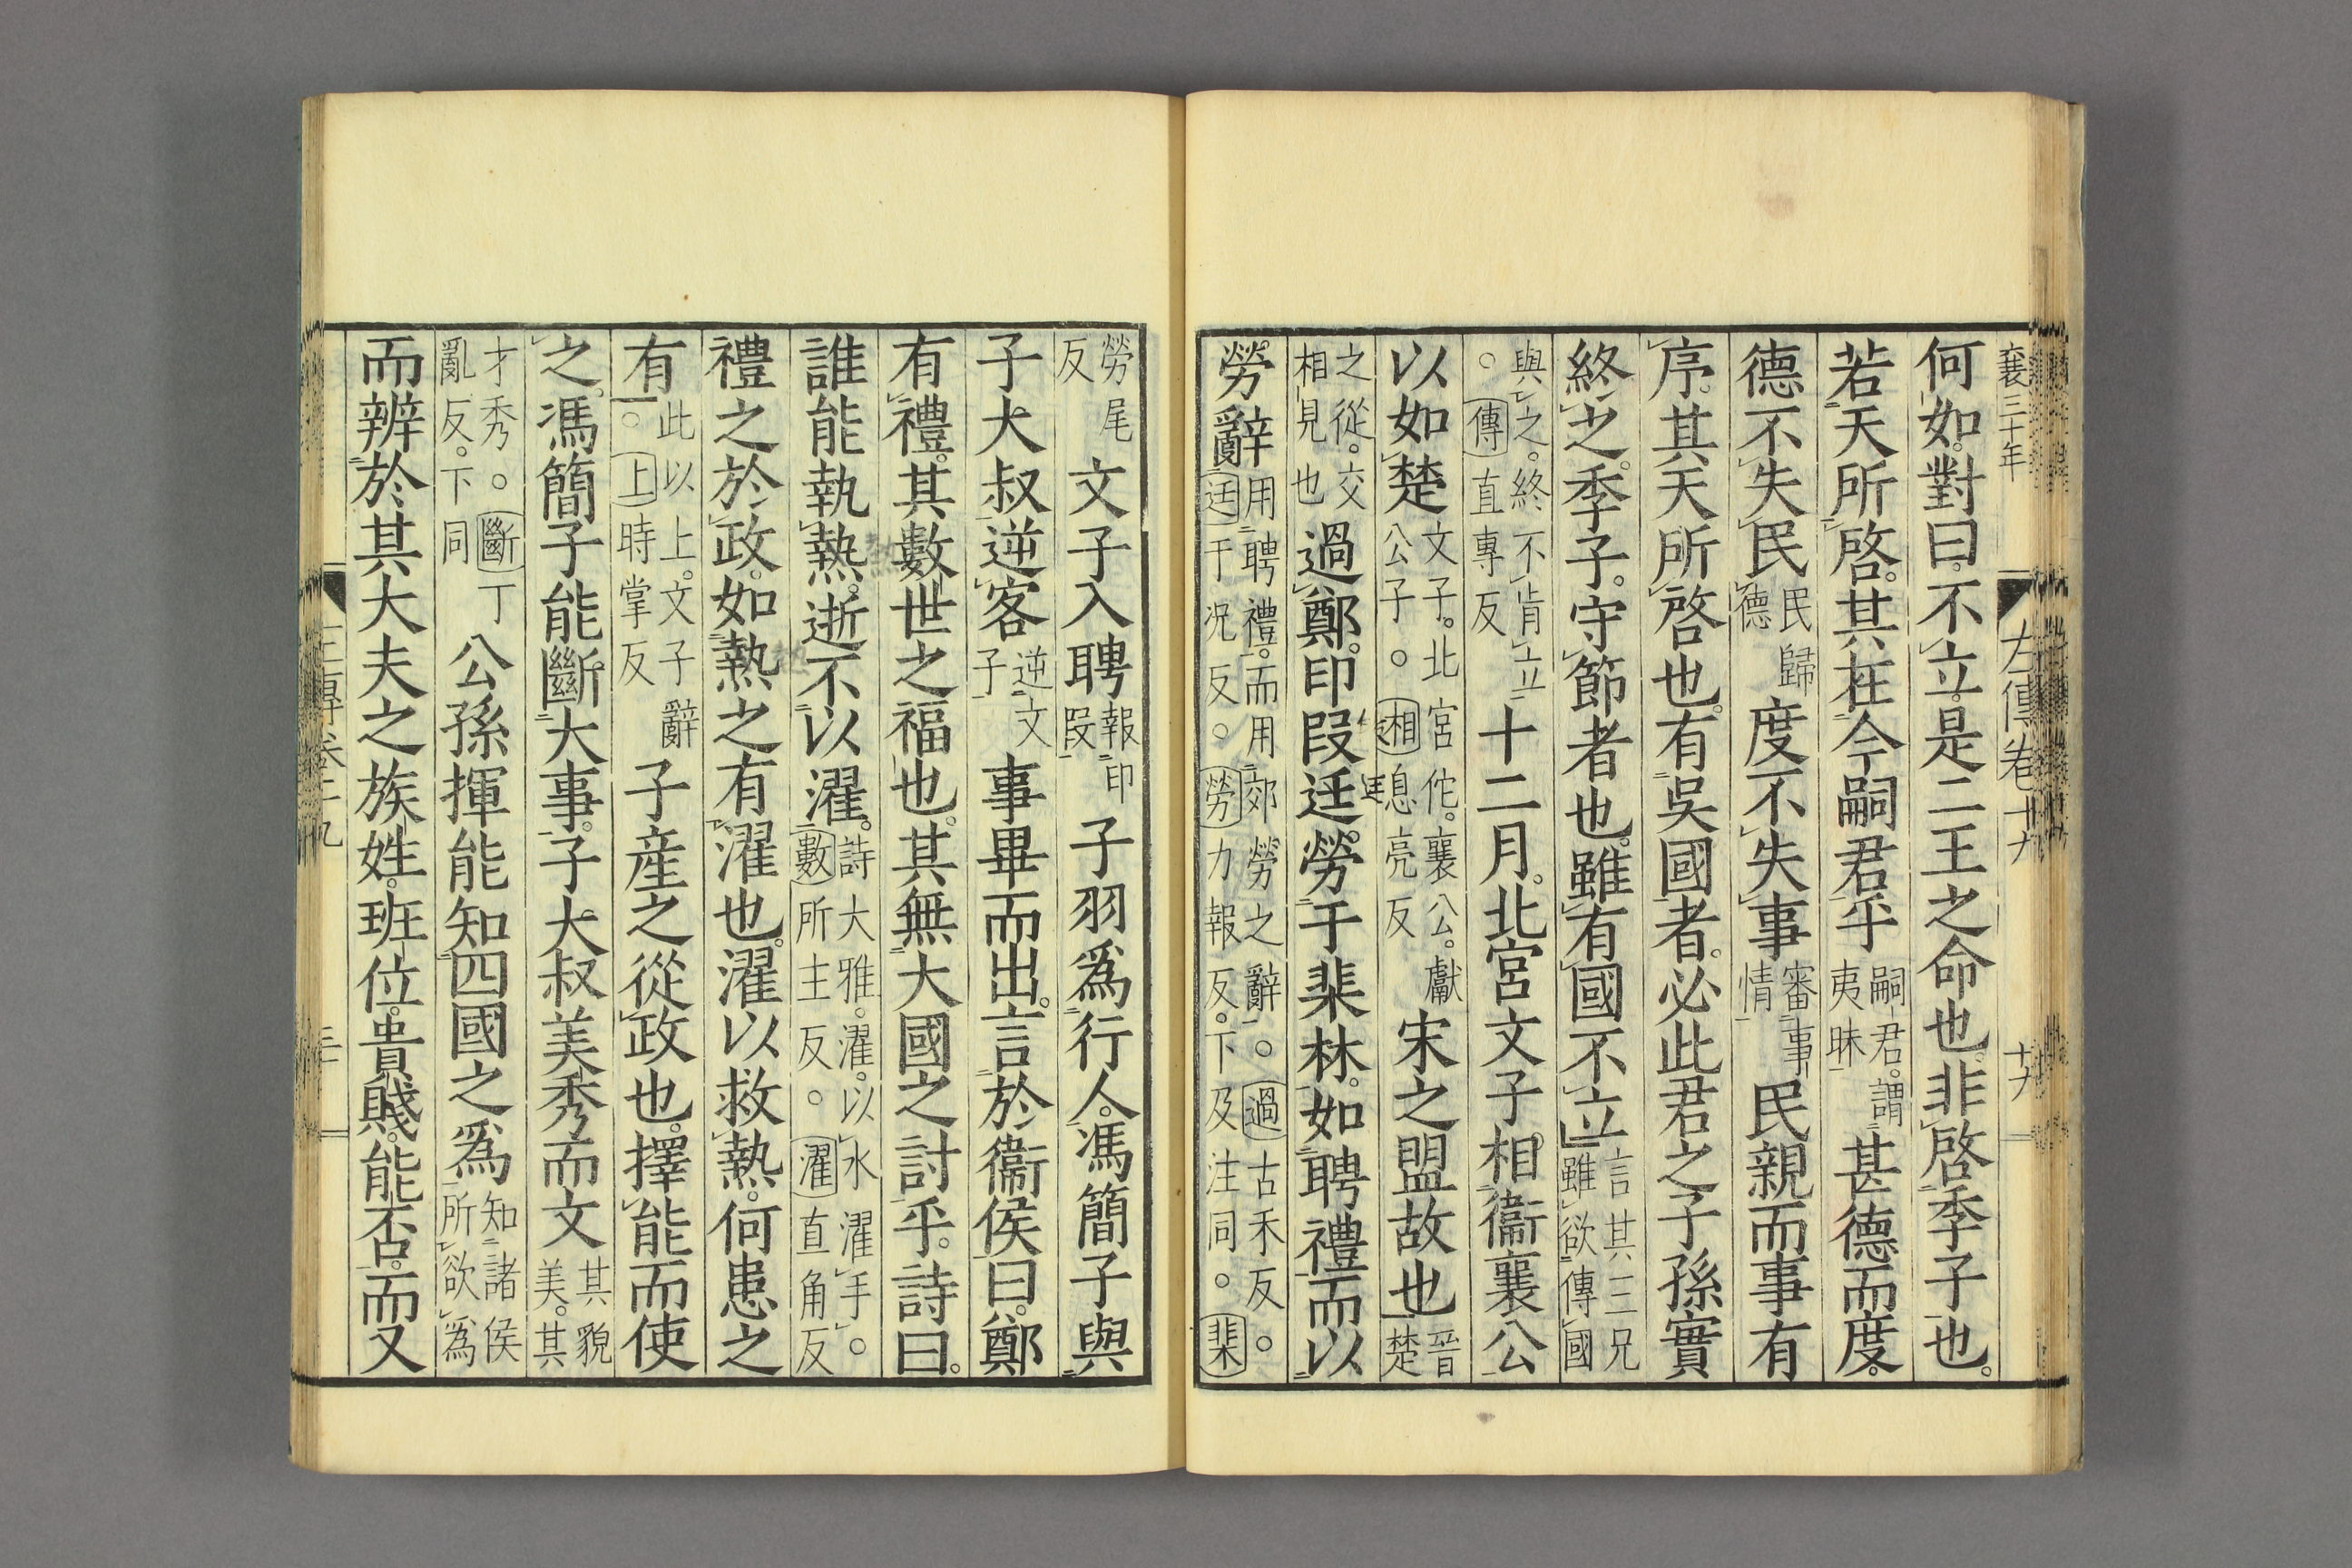 襄三十年
左傳卷十九
十九
何如。對曰。不立。是二王之命也。非啓季子也。
若天所啓。其在今嗣君乎嗣君。謂夷昧甚德而度。
德不失民民歸德度不失事審事情民親而事有
序。其天所啓也。有吳國者。必此君之子孫實
終之。季子。守節者也。雖有國不立言其三兄雖欲傳國
與之。終不肯立。○傳直專反十二月。北宮文子。相衞襄公
以如楚文子。北宮佗。襄公。獻公子。○相息亮反宋之盟故也晉楚
之從。交相見也過鄭。印段廷勞于棐林。如聘禮而以
勞辭用聘禮。而用郊勞之辭。○過古禾反。○廷于况反。○勞力報反。下及注同。○棐
勞尾反文子入聘報印段子羽爲行人。馮簡子與
子大叔逆客逆文子事畢而出。言於衞侯曰。鄭
有禮。其數世之福也。其無大國之討乎。詩曰。
誰能執熱。逝不以濯。詩大雅。濯。以水濯手。○數所主反。○濯直角反
禮之於政。如熱之有濯也。濯以救熱。何患之
有此以上。文子辭○上時掌反子產之從政也。擇能而使
之。馮簡子能斷大事。子大叔美秀而文其貌美。其
才秀。○斷丁亂反。下同公孫揮能知四國之爲知諸侯所欲爲
而辨於其大夫之族姓。班位。貴賤。能否。而又